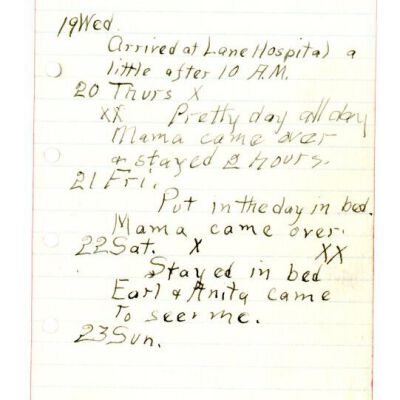 19 Wed.
Arrived at Lane Hospital a
little after 10 A.M.
20 Thurs X
XX Pretty day all day
Mama came over
& stayed 2 hours.
21 Fri.
Put in the day in bed.
Mama came over.
22 Sat. X XX
Stayed in bed
Earl & Anita came
to see me.
23 Sun.